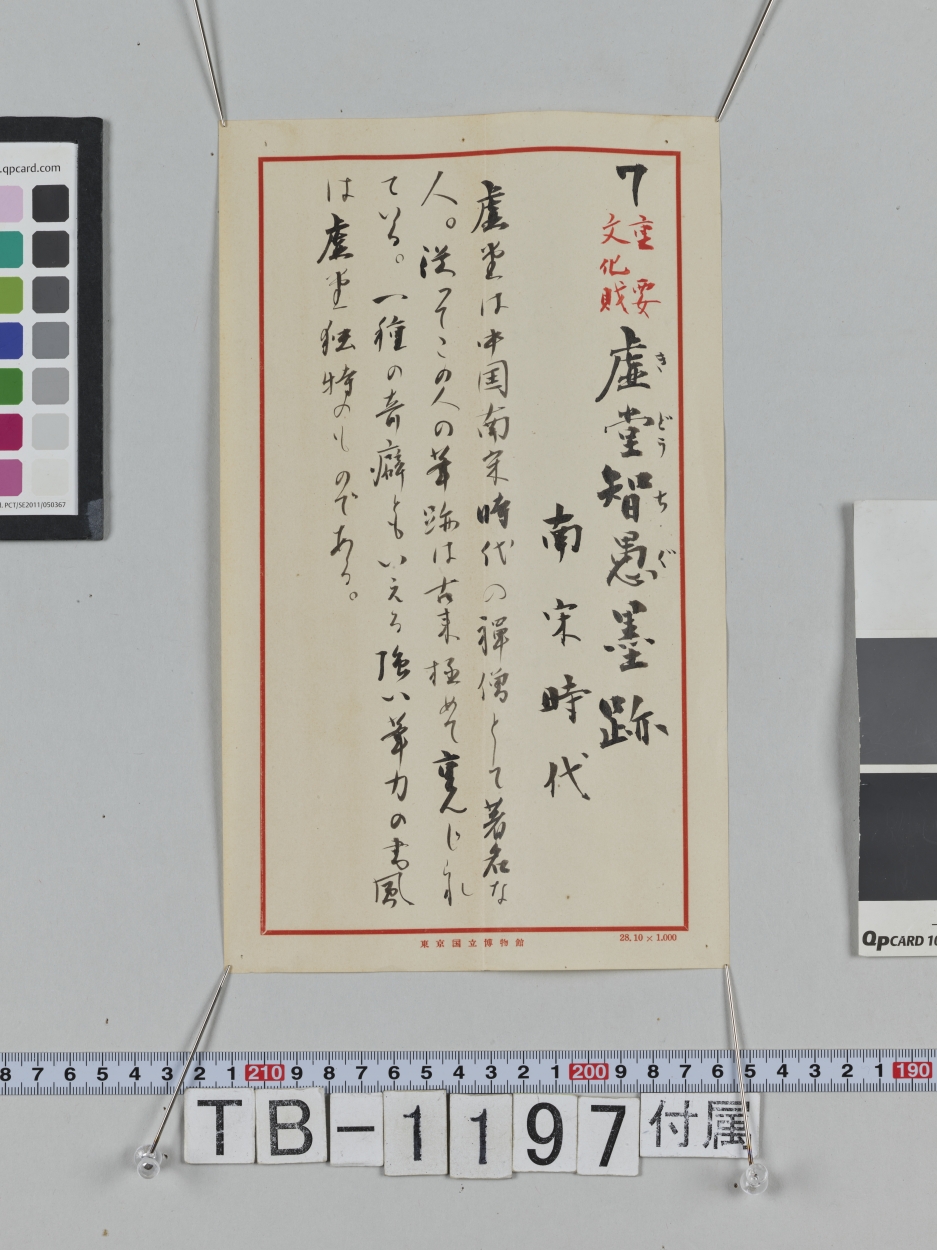 7 重要文化財 虚堂智愚墨跡
きどうちぐ
南宋時代
虚堂は中国南宋時代の禅僧として著名な
人。従つてこの人の筆跡は古来極めて重んじられ
ている。一種の奇癖ともいえる強い筆力の書風
は虚堂独特のものである。
東京国立博物館
28.10×1.000
.qpcard.com
PCT/SE2011/050367
QpCARD 10
8 7 6 5 4 3 2 1 210 9 8 7 6 5 4 3 2 1 200 9 8 7 6 5 4 3 2 1 190
TB-1197付属